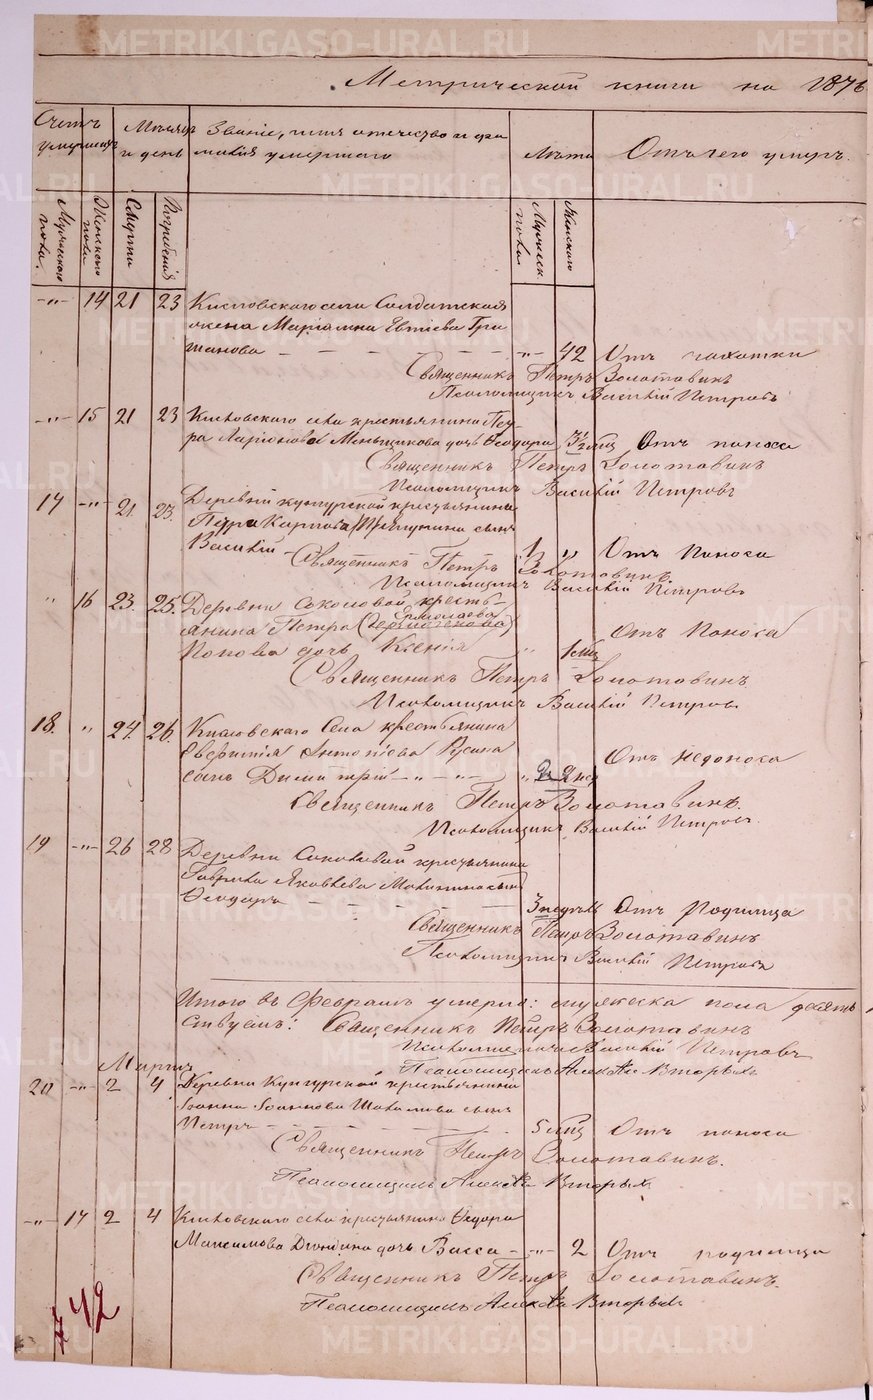 Метрической книги на 1876
Счетъ умершихъ
Мѣсяцъ и день
Званіе, имя отечество и фа
милія умершаго
Лѣта
Отъ чего умеръ.
Мужескаго пола.
Женскаго пола
Смерти
Погребенія
Мужеск. пола
Женскаго
-"- 14 21 23 Кисловскаго села Солдатская
жена Маріамна Евтіева Гра
жанова - - - - - "- 42 Отъ чахотки
Священникъ Петръ Золотавинъ
Псаломщикъ Василій Петровъ
-"- 15 21 23 Кисловскаго села крестьянина Пет
ра Ларіонова Меньщикова дочь Ѳеодора 3½ мѣс Отъ поноса
Священникъ Петръ Золотавинъ
Псаломщикъ Василій Петровъ
17 -"- 21 23. Деревни Кунгурской крестьянина
Петра Карпова сынъ
Василій - " Отъ Поноса
Священникъ Петръ Золотавинъ.
Псаломщикъ Василій Петровъ
" 16 23. 25. Деревни Соколовой кресть-
янина Петра Ермолаева
Попова дочь Ксенія " 1 мѣс Отъ Поноса
Священникъ Петръ Золотавинъ
Псаломщикъ Василій Петровъ.
18. " 24. 26. Кисловскаго Села крестьянина
Антоніева Русина
сынъ Димитрій - " - " - 2 дня Отъ недоноса
Священникъ Петръ Золотавинъ.
Псаломщикъ Василій Петровъ.
19 -"- 26 28 Деревни Соколовой крестьянина
Гаврила Яковлева сынъ
Ѳеодоръ - - - - - 3 недѣль Отъ Родимца
Священникъ Петръ Золотавинъ
Псаломщикъ Василій Петровъ
Итого въ Февралѣ умерло: мужеска пола девять
Священникъ Петръ Золотавинъ
Василій Петровъ
Псаломщикъ Алексѣй Вторыхъ
Мартъ
20 -"- 2 4 Деревни Кунгурской крестьянина
Іоанна Іоаннова сынъ
Петръ - - - - - 5 мѣс Отъ поноса
Священникъ Петръ Золотавинъ.
Псаломщикъ Алексѣй Вторыхъ
-"- 17 2 4 Кисловскаго села крестьянина Ѳедора
Максимова Дюндина дочь Васса - -"- 2 Отъ родимца
Священникъ Петръ Золотавинъ.
Псаломщикъ Алексѣй Вторыхъ
742
METRIKI.GASO-URAL.RU